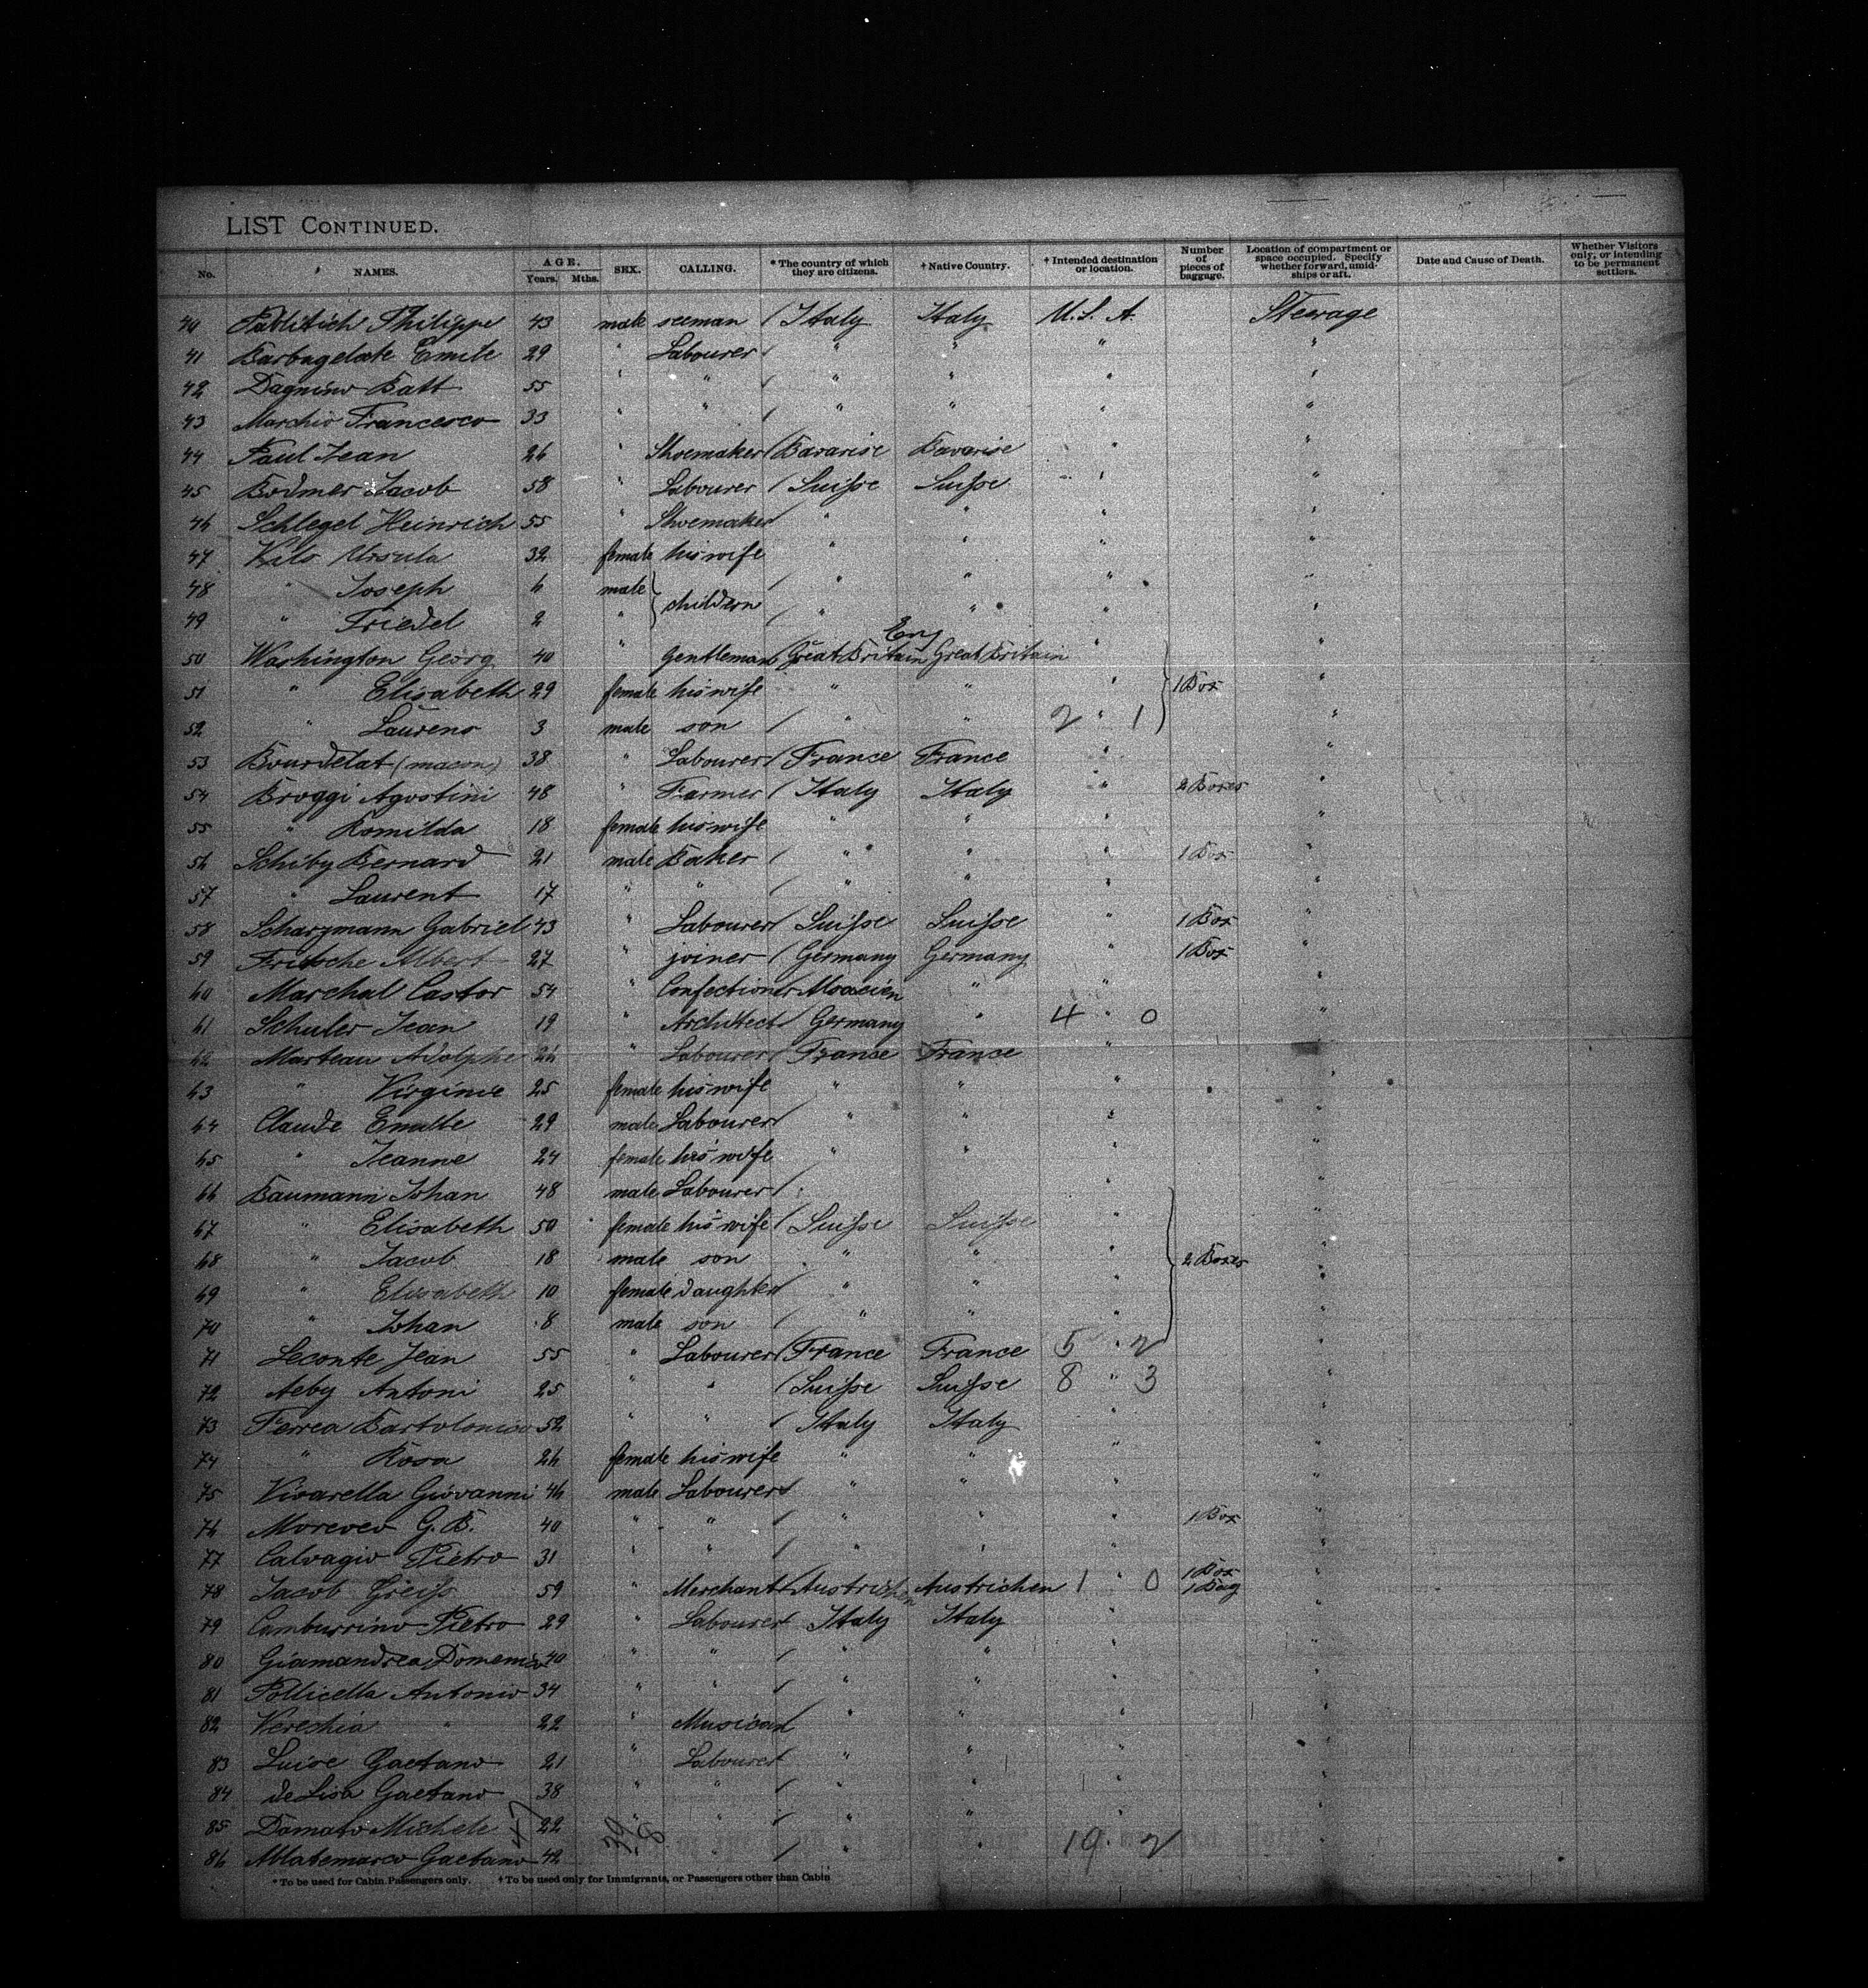 LIST CONTINUED.
No. NAMES. AGE. Years. Mths. SEX. CALLING. * The country of which they are citizens. † Native Country. † Intended destination or location. Number of pieces of baggage. Location of compartment or space occupied. Specify whether forward, amidships or aft. Date and Cause of Death. Whether Visitors only, or intending to be permanent settlers.
40 Pablitich Philippe 43 male seeman / Italy Italy U.S.A. Steerage
41 Barbagelate Emile 29 " Labourer / " " " "
42 Dagnino Batt 55 " " / " " " "
43 Marchio Francesco 33 " " / " " " "
44 Paul Jean 26 " Shoemaker / Bavarise Bavarise " "
45 Bodmer Jacob 58 " Labourer / Suisse Suisse " "
46 Schlegel Heinrich 55 " Shoemaker / " " " "
47 Ursula 32 female his wife " " " "
48 " Joseph 6 male } children / " " " "
49 " Friedel 2 " / " " " "
Eng
50 Washington Georg 40 " Gentleman / Great Britain Great Britain "  "
51 " Elisabeth 29 female his wife " " " } 1 Box "
52 " Laurens 3 male son / " " 2 " 1 "
53 Bourdelat (macon) 38 " Labourer / France France " "
54 Broggi Agostini 48 " Farmer / Italy Italy " 2 Boxes "
55 " Romilda 18 female his wife " " " "
56 Schiby Bernard 21 male Baker / " " " 1 Box "
57 " Laurent 17 " " / " " " "
58 Scharzmann Gabriel 43 " Labourer / Suisse Suisse " 1 Box "
59 Fritsche Albert 27 " joiner / Germany Germany " 1 Box "
60 Marchal Castor 54 " Confectioner / Alsacien " " "
61 Schuler Jean 19 " Architect / Germany " 4 " 0 "
62 Marteau Adolphe 26 " Labourer / France France "
63 " Virginie 25 female his wife " " " "
64 Claude Emille 29 male Labourer / " " " "
65 " Jeanne 24 female his wife " " " "
66 Baumann Johan 48 male Labourer / " "
67 " Elisabeth 50 female his wife / Suisse Suisse " "
68 " Jacob 18 male son " " " } 2 Boxes "
69 " Elisabeth 10 female daughter / " " " "
70 " Johan 8 male son / " " " "
71 Leconte Jean 55 " Labourer / France France 5 " 2 "
72 Aeby Antoni 25 " " / Suisse Suisse 8 " 3 "
73 Ferrea Bartolomico 52 " " / Italy Italy " "
74 " Rosa 26 female his wife " " " "
75 Vivarella Giovanni 46 male Labourer / " " " "
76 G. B. 40 " " / " " " 1 Box "
77 Calvagio Pietro 31 " " / " " " "
78 Jacob Greiss 59 " Merchant / Austrichen Austrichen 1 " 0 1 Box 1 Bag "
79 Camburrino Pietro 29 " Labourer / Italy Italy " "
80 Giamandrea Domenico 40 " " / " " " "
81 Pollicella Antonio 34 " " / " " " "
82 Vereshia " 22 " Musican / " " " "
83 Luise Gaetano 21 " Labourer / " " " "
84 de Lisa Gaetano 38 " " / " " " "
85 Damato Michele 47 22 " " / " " " "
86 Gaetano 42 39 8 " / " " 19 . 2
* To be used for Cabin Passengers only. † To be used only for Immigrants, or Passengers other than Cabin